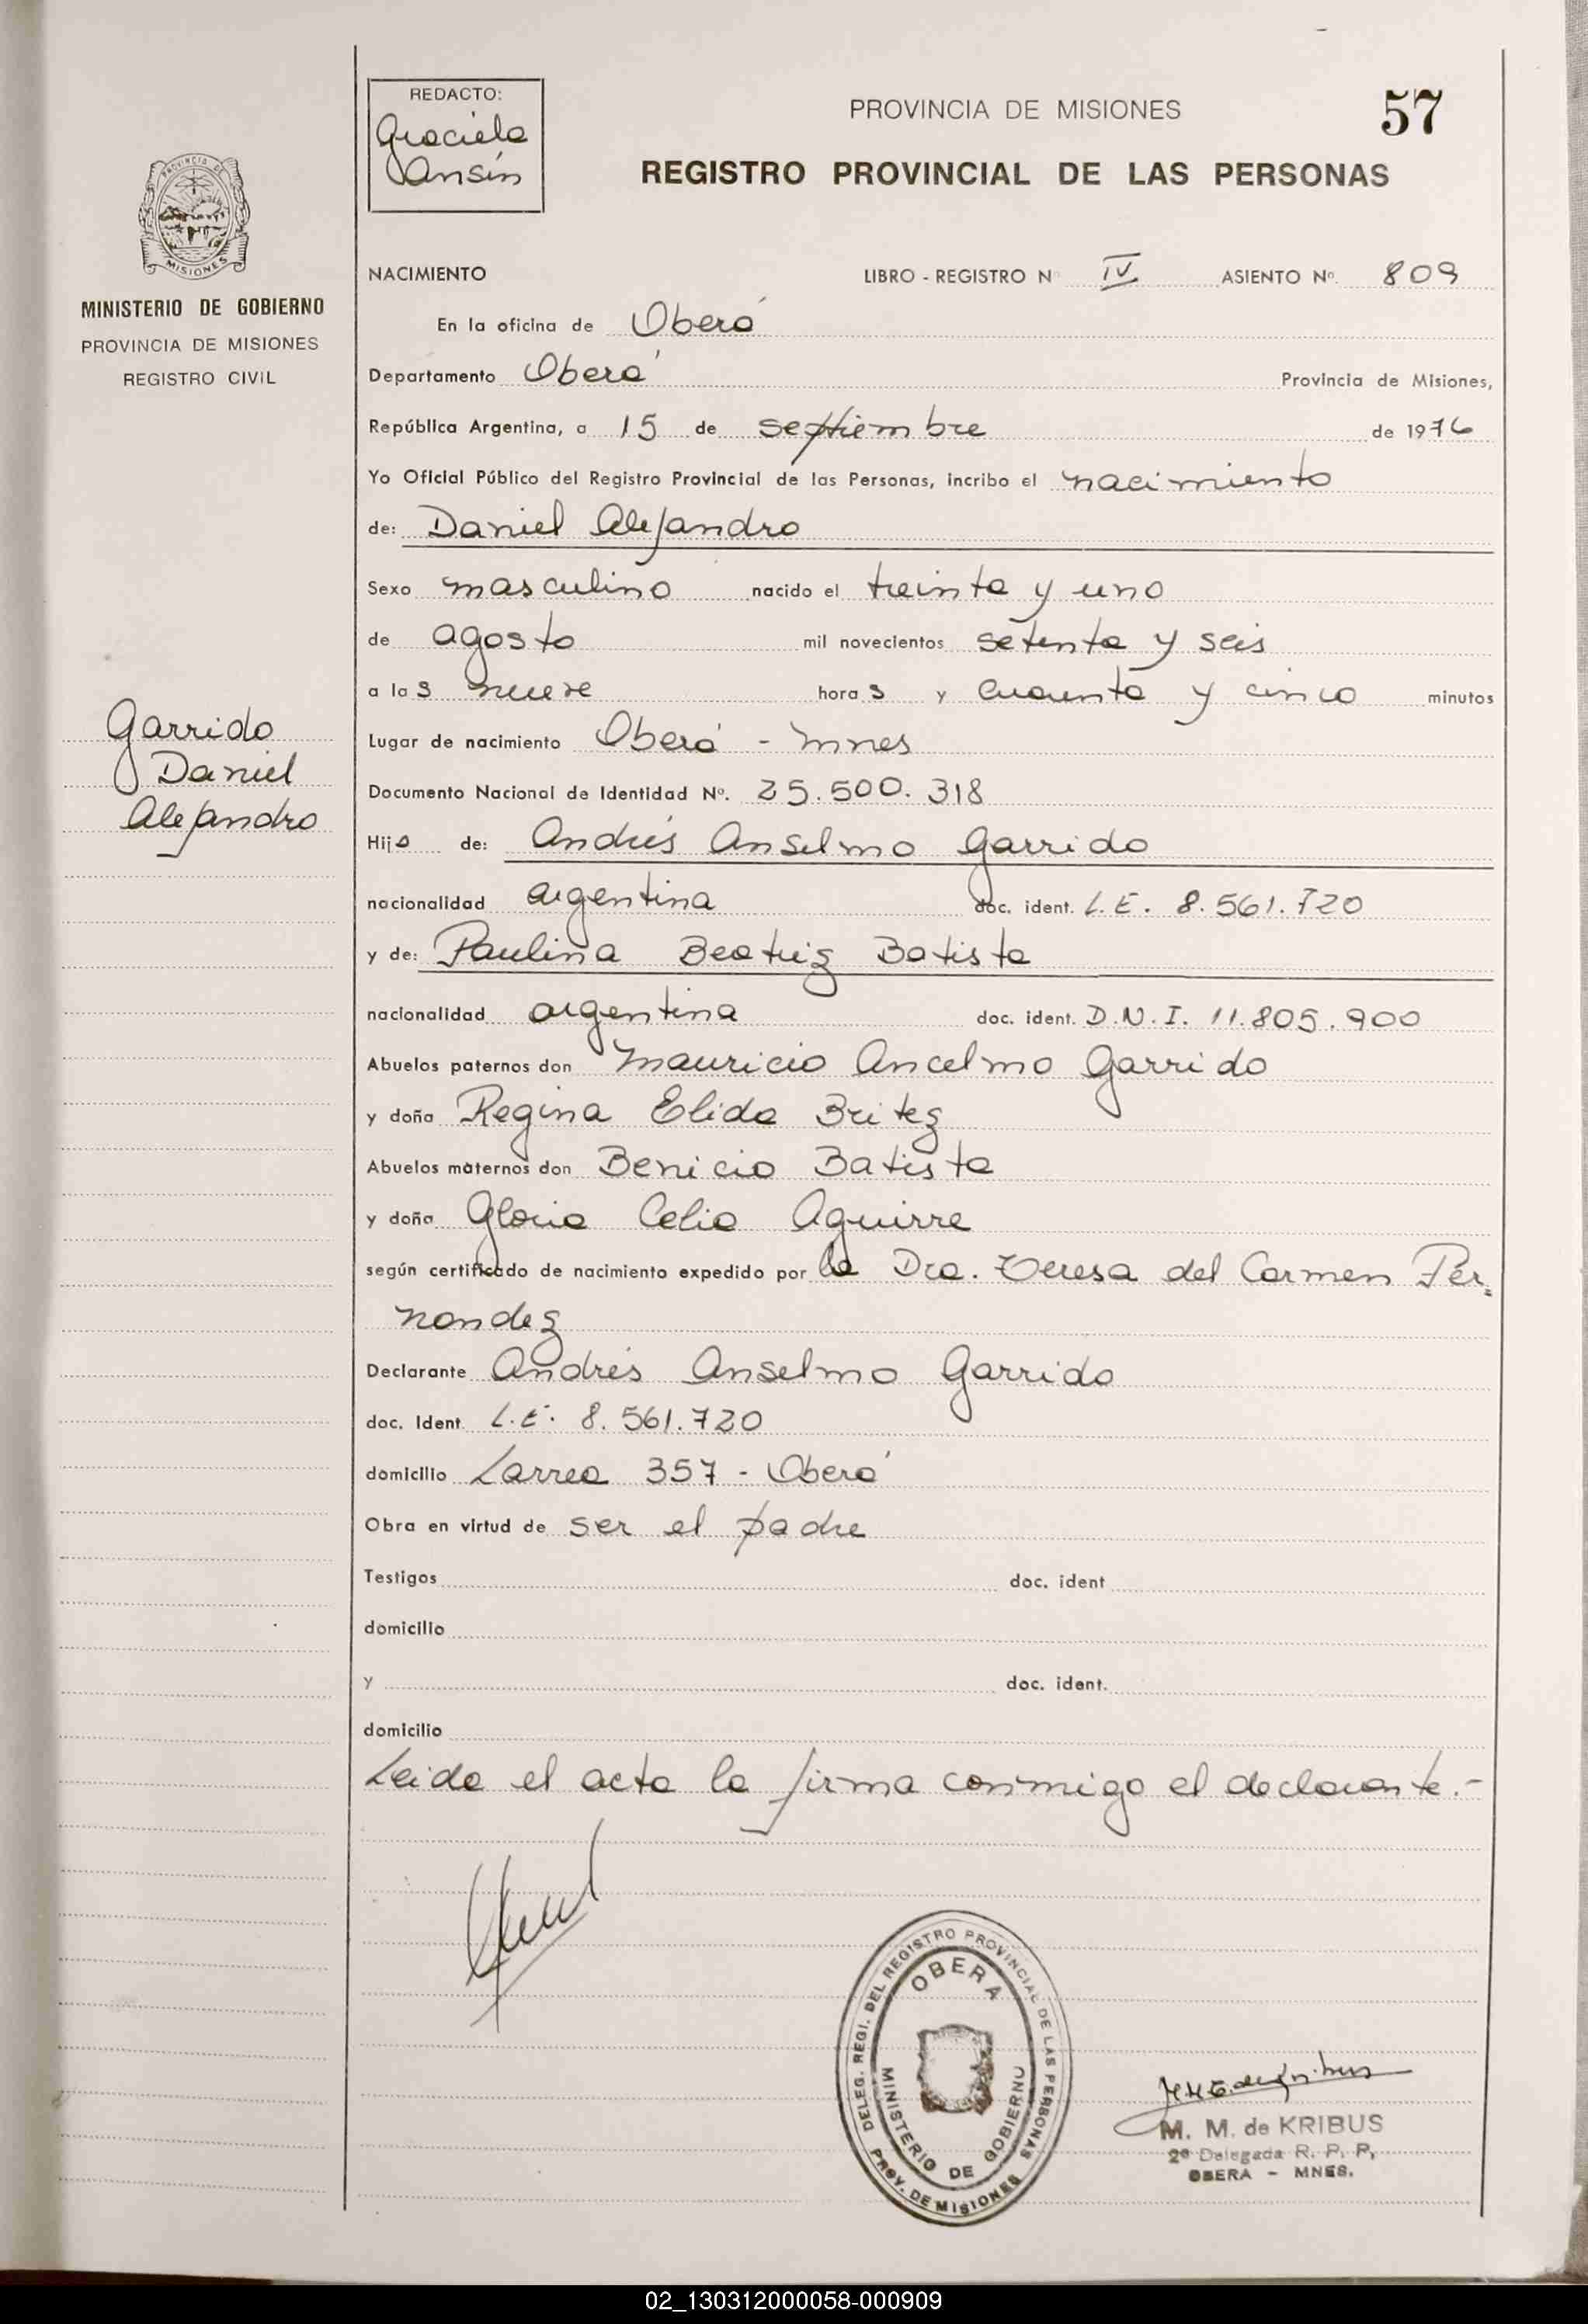 REDACTO:
Graciela
Ansin
PROVINCIA DE MISIONES
57
REGISTRO PROVINCIAL DE LAS PERSONAS
PROVINCIA DE
MISIONES
MINISTERIO DE GOBIERNO
PROVINCIA DE MISIONES
REGISTRO CIVIL
Garrido
Daniel
Alejandro
NACIMIENTO LIBRO - REGISTRO Nº IV ASIENTO Nº. 809
En la oficina de Oberá
Departamento Oberá Provincia de Misiones,
República Argentina, a 15 de septiembre de 1976
Yo Oficial Público del Registro Provincial de las Personas, incribo el nacimiento
de: Daniel Alejandro
Sexo masculino nacido el treinta y uno
de agosto mil novecientos setenta y seis
a las nueve horas y cuarenta y cinco minutos
Lugar de nacimiento Oberá - Mnes
Documento Nacional de Identidad Nº. 25.500.318
Hijo de: Andrés Anselmo Garrido
nacionalidad argentina doc. ident. L.E. 8.561.720
y de: Paulina Beatriz Batista
nacionalidad argentina doc. ident. D.N.I. 11.805.900
Abuelos paternos don Mauricio Ancelmo Garrido
y doña Regina Elida Britez
Abuelos maternos don Benicio Batista
y doña Gloria Celia Aguirre
según certificado de nacimiento expedido por la Dra. Teresa del Carmen Fer=
nandez
Declarante Andrés Anselmo Garrido
doc. Ident. L.E. 8.561.720
domicilio Larrea 357 - Oberá
Obra en virtud de ser el padre
Testigos doc. ident
domicilio
y doc. ident.
domicilio
Leida el acta la firma conmigo el declarante.-
DELEG. REGI. DEL REGISTRO PROVINCIAL DE LAS PERSONAS
OBERA
MINISTERIO DE GOBIERNO
PROV. DE MISIONES
M. M. de KRIBUS
2º Delegada R. P. P,
OBERA - MNES.
02_130312000058-000909